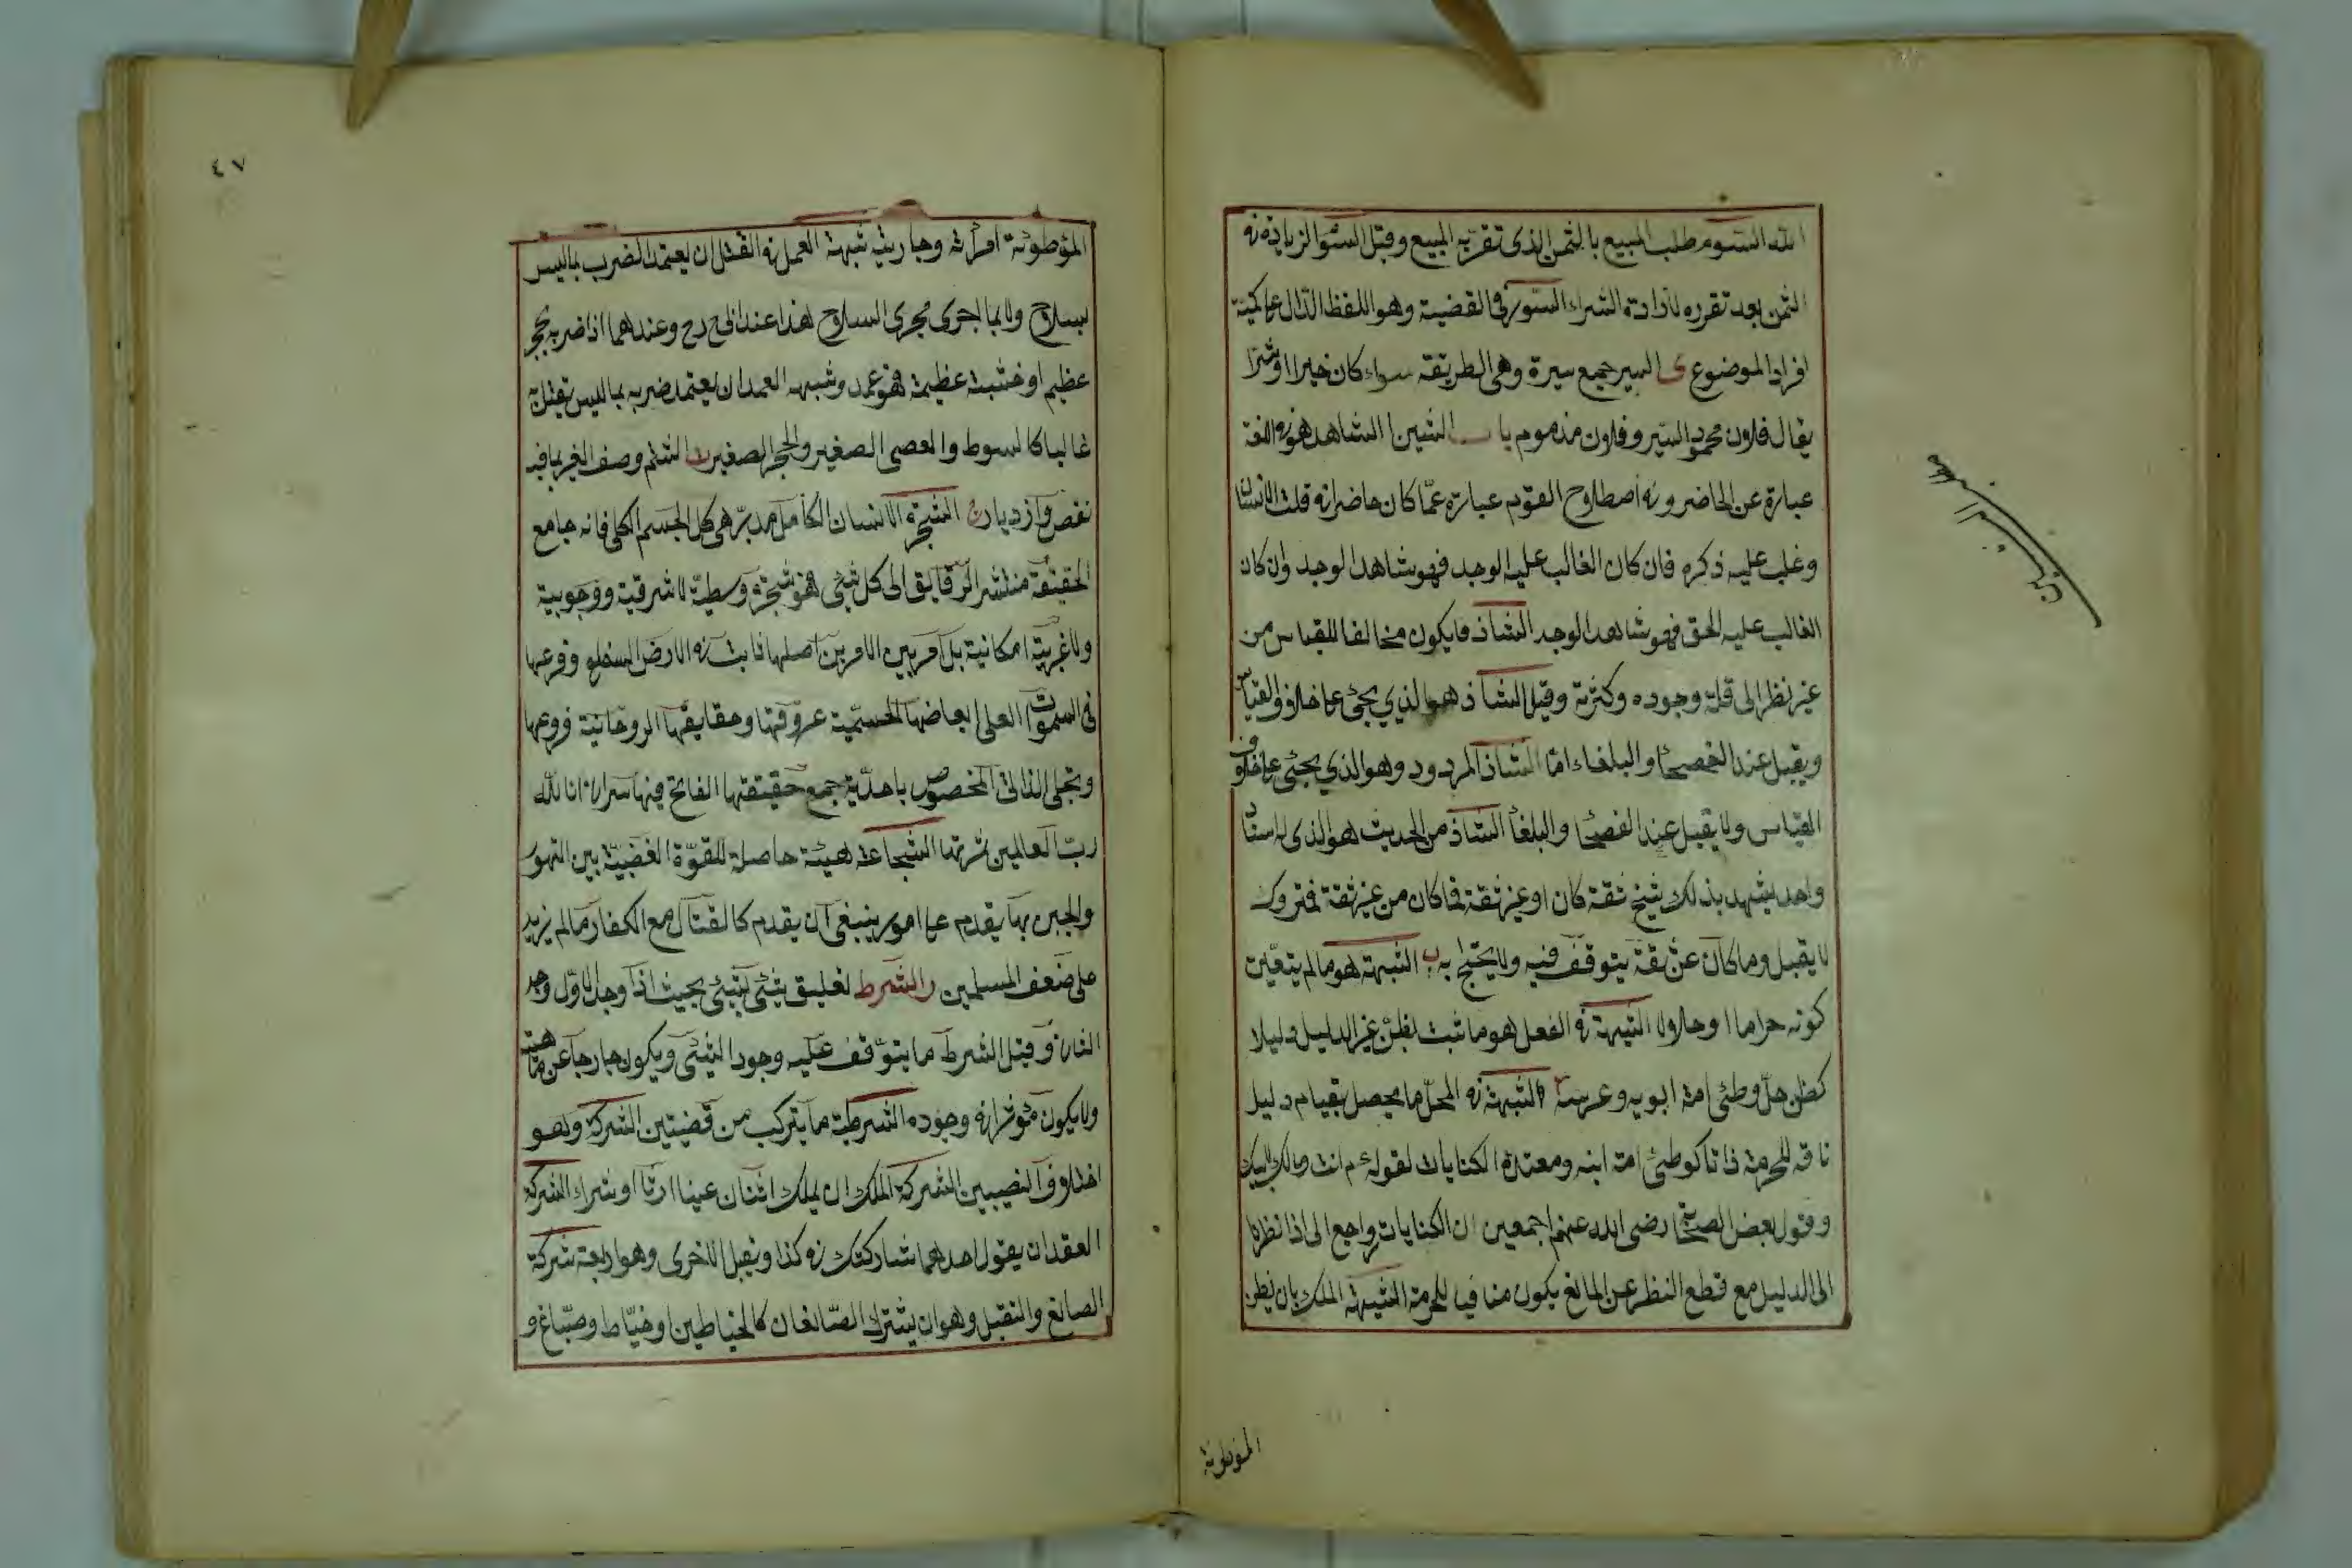 الله السوم طلب المبيع بالثمن الذي تقرر به المبيع وقيل السوم الزيادة في
الثمن بعد تقرره لارادة الشراء السور في القضية وهو اللفظ الدال على كمية
افراد الموضوع ى السير جمع سيرة وهى الطريقة سواء كان خيرا او شرا
يقال فلان محمود السير وفلان مذموم باب الشين الشاهد هو في اللغة
عبارة عن الحاضر وفي اصطلاح القوم عبارة عما كان حاضرا في قلب الانسان
وغلب عليه ذكره فان كان الغالب عليه الوجد فهو شاهد الوجد وان كان
الغالب عليه الحق فهو شاهد الوجد الشاذ ما يكون مخالفا للقياس من
غير نظر الى قلة وجوده وكثرته وقيل الشاذ هو الذي يجئ على خلاف القياس
ويقبل عند الفصحا والبلغاء اما الشاذ المردود وهو الذي يجئ على خلاف
القياس ولا يقبل عند الفصحا والبلغا الشاذ من الحديث هو الذى له اسناد
واحد يشهد بذلك شيخ ثقة كان او غير ثقة فما كان من غير ثقة فمتروك
لا يقبل وما كان عن ثقة يتوقف فيه ولا يحتج به ب الشبهة هو ما لم يتعين
كونه حراما او حلالا الشبهة في الفعل هو ما ثبت بظن غير الدليل دليلا
كظن حل وطئ امة ابويه وعرسه الشبهة في المحل ما يحصل بقيام دليل
ناف للحرمة ذاتا كوطئ امة ابنه ومعتدة الكنايات لقوله م انت ومالك لابيك
وقول بعض الصحابة رضى الله عنهم اجمعين ان الكنايات رواجع الى اذا نظرنا
الى الدليل مع قطع النظر عن المانع يكون منافيا للحرمة الشبهة الملك بان يظن
الموطوئة
٤٧
الموطوئة امرأته وجاريته شبهة العمد في القتل ان يعتمد الضرب بما ليس
بسلاح ولا بما اجرى مجرى السلاح هذا عند ابى ح رح وعندهما اذا ضربه بحجر
عظيم او خشبة عظيمة فهو عمد وشبه العمد ان يعتمد ضربه بما ليس تقتل به
غالبا كالسوط والعصى الصغير والحجر الصغير الشتم وصف الغير بما فيه
نقص وازدياد الشجرة الانسان الكامل مدبر هيكل الجسم الكلى فانه جامع
الحقيقة منتشر الرقايق الى كل شئ فهو شجرة وسطية لا شرقية ووجوبية
ولا غربية امكانية بل امر بين الامرين اصلها ثابت في الارض السفلى وفرعها
في السموات العلى ابعاضها الجسمية عروقها وحقايقها الروحانية فروعها
وتجلى الذاتى المخصوص باحدية جمع حقيقتها الفاتح فيها سرار انا الله
رب العالمين ثمرتها الشجاعة هيئة حاصلة للقوة الغضبية بين التهور
والجبن بها يقدم على امور ينبغى ان يقدم كالقتال مع الكفار ما لم يزيد
على ضعف المسلمين ر الشرط تعليق شئ بشئ بحيث اذا وجد الاول وجد
الثانى وقيل الشرط ما يتوقف عليه وجود الشئ ويكون خارجا عن ماهيته
ولا يكون مؤثرا في وجوده الشرطية ما يتركب من قضيتين الشركة وهو
اختلاف النصيبين الشركة الملك ان يملك اثنان عينا ارثا او شراء الشركة
العقد ان يقول احدهما شاركتك في كذا ويقبل الاخرى وهو اربعة شركة
الصانع والتقبل وهو ان يشترك الصانعان كالخياطين او خياط وصباغ و